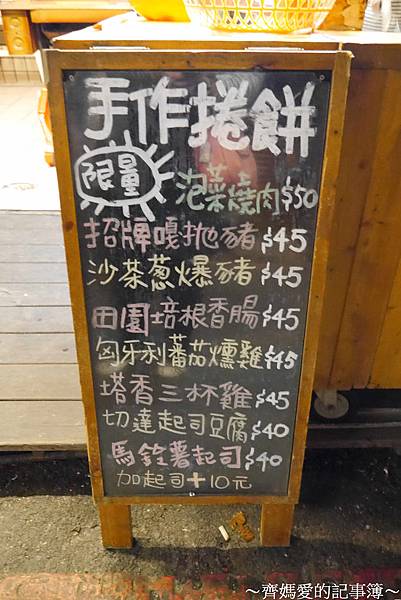 手作捲餅
限量
泡菜燒肉$50
招牌嘎拋豬$45
沙茶蔥爆豬$45
田園培根香腸$45
匈牙利蕃茄燻雞$45
塔香三杯雞$45
切達起司豆腐$40
馬鈴薯起司$40
加起司+10元
～齊媽愛的記事簿～